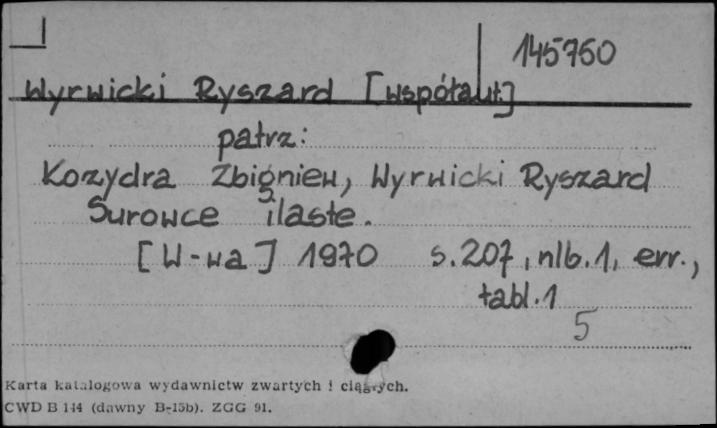 145750
Wyrwicki Ryszard [współaut.]
patrz:
Kozydra Zbigniew, Wyrwicki Ryszard
Surowce ilaste.
[W-wa] 1970 s. 207, nlb. 1, err.,
tabl. 1
5
Karta katalogowa wydawnictw zwartych i ciągłych.
CWD B 144 (dawny B-15b). ZGG 91.